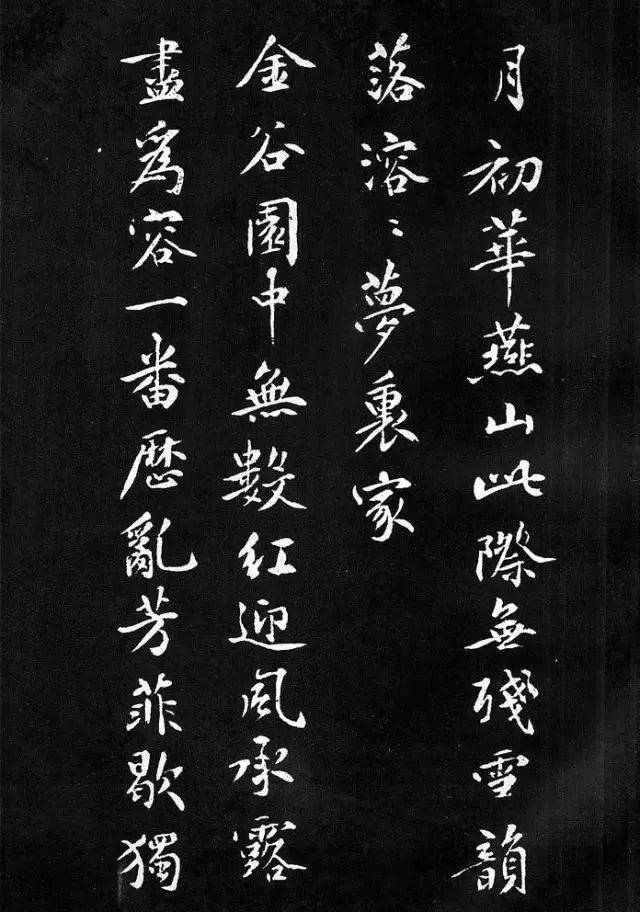 月初華燕山此際無殘雪韻
落溶〻夢裏家
金谷園中無數紅迎風承露
盡爲容一番歷亂芳菲歇獨